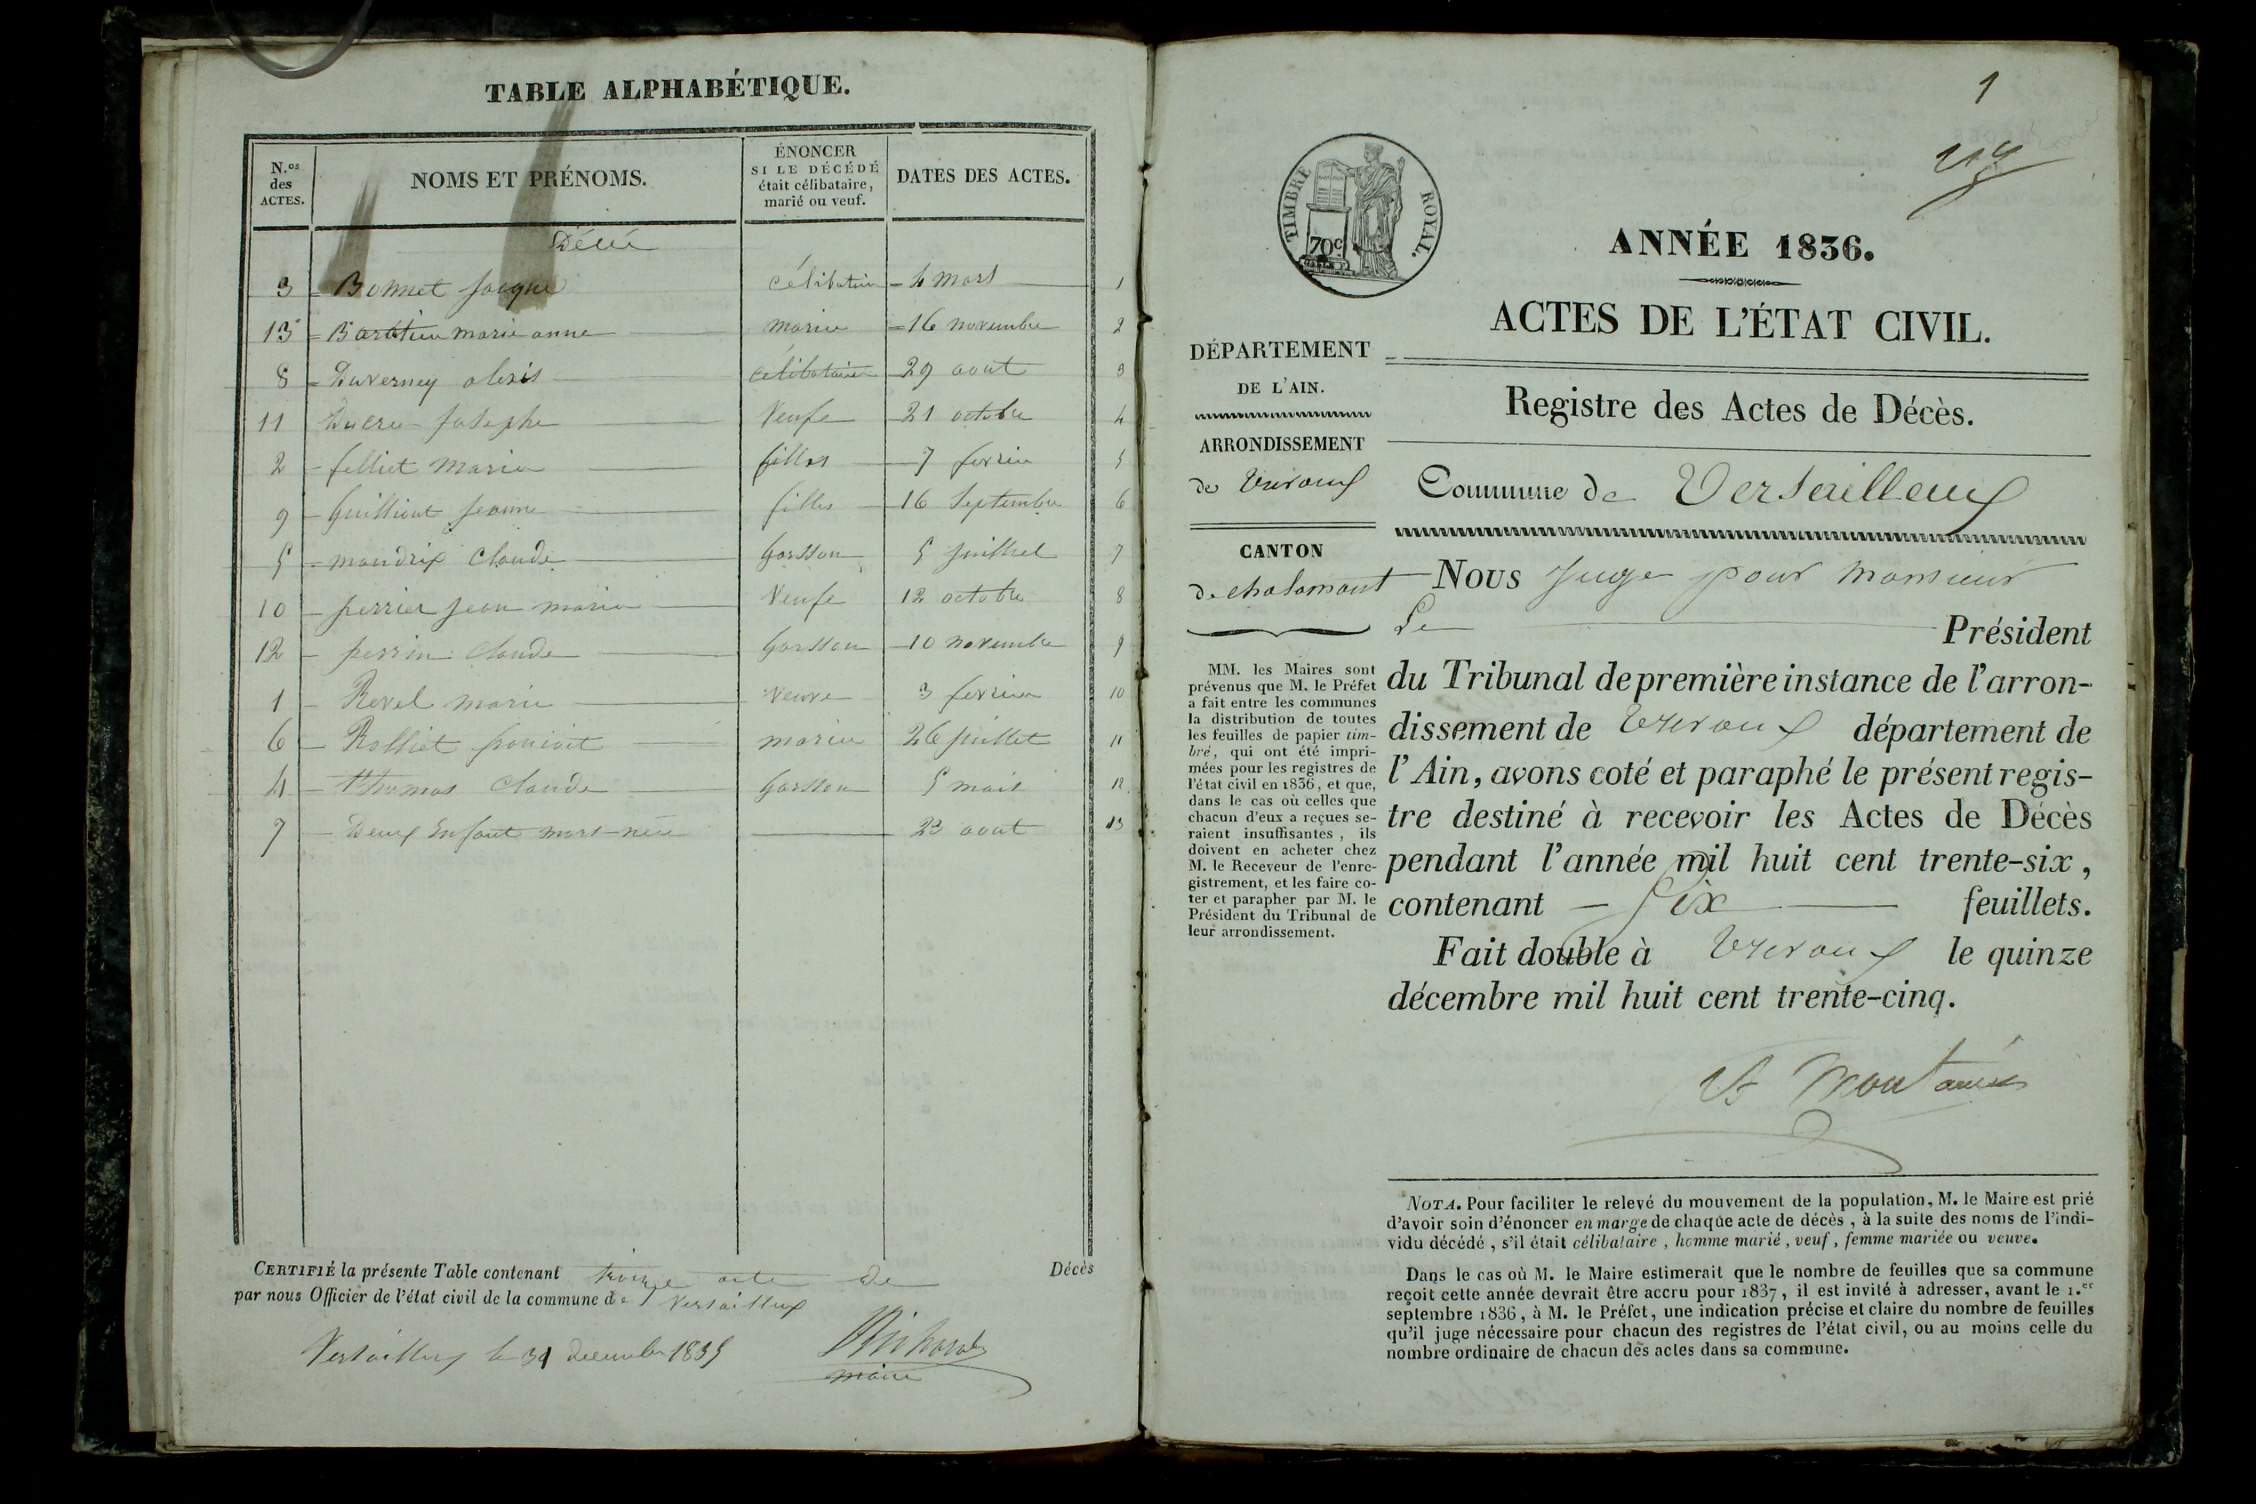 TABLE ALPHABÉTIQUE.
N.os des ACTES.
NOMS ET PRÉNOMS.
ÉNONCER SI LE DÉCÉDÉ était célibataire, marié ou veuf.
DATES DES ACTES.
Décéé
3 Bonnet Jacque célibataire 4 mars 1
13 marie anne marieu 16 novembre 2
8 Duverney alexis célibataire 29 aout 3
11 Ducru Josephe Veufe 21 octobre 4
2 felliet Marie filles 7 fevrier 5
9 Guilliout Jeanne filles 16 Septembre 6
5 mandrix Claude Garsson 5 juilliel 7
10 perrier jean marie Veufe 12 octobre 8
12 perrin Claude Garsson 10 novembre 9
1 Revel marie veuve 3 fevrier 10
6 Rolliet marieu 26 juillet 11
4 thomas Claude Garsson 5 mais 12
7 Deux Enfant mort-néé 23 aout 13
CERTIFIÉ la présente Table contenant treize acte de Décès
par nous Officier de l'état civil de la commune de Versailleux
Versailleux le 31 decembre 1835
maire
1
TIMBRE ROYAL.
70c
ANNÉE 1836.
ACTES DE L'ÉTAT CIVIL.
DÉPARTEMENT
DE L'AIN.
ARRONDISSEMENT
de Trévoux
CANTON
de chalamont
MM. les Maires sont
prévenus que M. le Préfet
a fait entre les communes
la distribution de toutes
les feuilles de papier tim-
bré, qui ont été impri-
mées pour les registres de
l'état civil en 1836, et que,
dans le cas où celles que
chacun d'eux a reçues se-
raient insuffisantes, ils
doivent en acheter chez
M. le Receveur de l'enre-
gistrement, et les faire co-
ter et parapher par M. le
Président du Tribunal de
leur arrondissement.
Registre des Actes de Décès.
Commune de Versailleux
Nous Juge pour Monsieur
Le Président
du Tribunal de première instance de l'arron-
dissement de Trévoux département de
l'Ain, avons coté et paraphé le présent regis-
tre destiné à recevoir les Actes de Décès
pendant l'année mil huit cent trente-six,
contenant Six feuillets.
Fait double à Trévoux le quinze
décembre mil huit cent trente-cinq.
NOTA. Pour faciliter le relevé du mouvement de la population, M. le Maire est prié
d'avoir soin d'énoncer en marge de chaque acte de décès, à la suite des noms de l'indi-
vidu décédé, s'il était célibataire, homme marié, veuf, femme mariée ou veuve.
Dans le cas où M. le Maire estimerait que le nombre de feuilles que sa commune
reçoit cette année devrait être accru pour 1837, il est invité à adresser, avant le 1.er
septembre 1836, à M. le Préfet, une indication précise et claire du nombre de feuilles
qu'il juge nécessaire pour chacun des registres de l'état civil, ou au moins celle du
nombre ordinaire de chacun des actes dans sa commune.